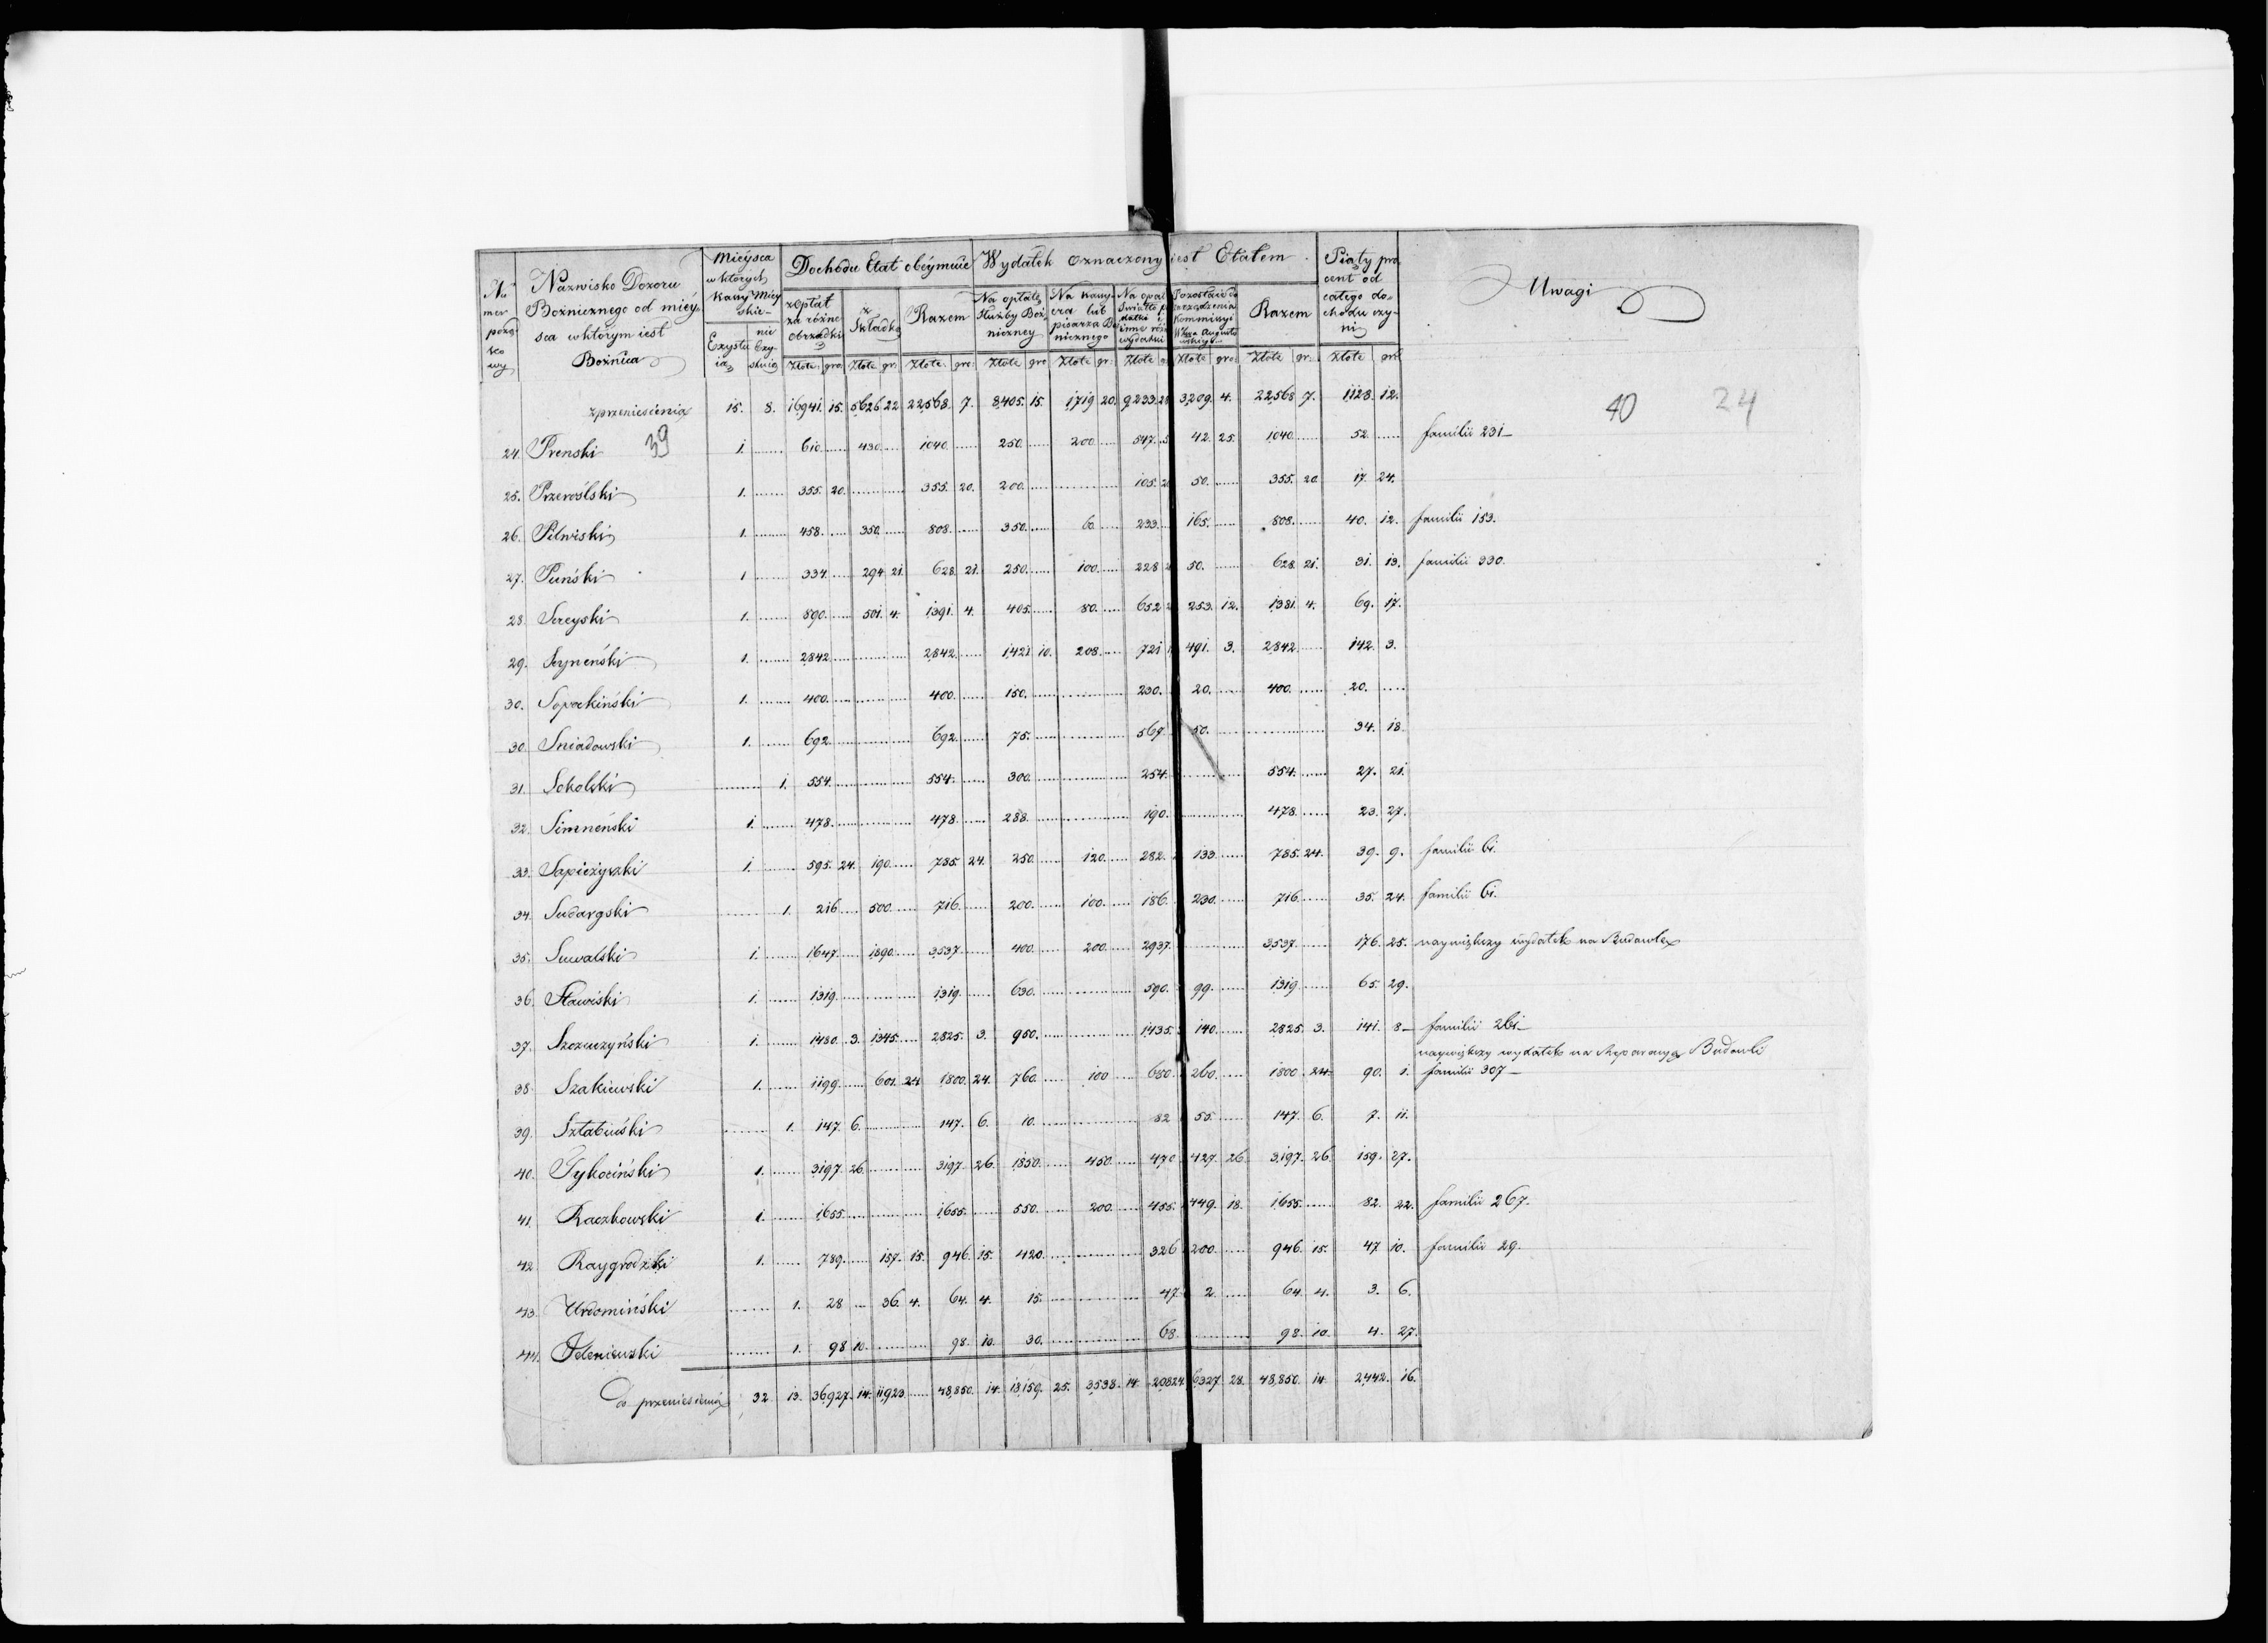 Nu mer porzą dko wy
Nazwisko Dozoru Bożnicznego od miey, sca wktórym iest Bożnica
Mieysca wktórych Kassy Miey skie
Exystu ią
nie Exy stuią
Dochodu Etat obeymuie
z Opłat za różne Obrządki
z Składki
Razem
Wydatek oznaczony iest Etatem
Na opłatę Służby Boż niczney
Na Kassy era lub pisarza Bo nicznego
Na opał Światło inne wydatki
Pozostaie do Kommissyi
Razem
Piąty pro cent od całego do chodu czy ni
Uwagi
Złote gro: Złote gr: Złote gro: Złote gro Złote gr: Złote Złote gro: Złote gr: Złote gro
40 24
zprzeniesienia 15. 8. 16941. 15. 5626 22 22568. 7. 8405. 15. 1719 20. 9233 3209. 4. 22568 7. 1128. 12.
24. Prenski 39 1. 610 430 1040 250. 200 547. 42. 25. 1040 52. familii 231
25. Przeroślski 1. 355. 20. 355. 20. 200. 105. 50. 355. 20 17. 24.
26. Pilwiski 1. 458. 350. 808. 350. 60 233. 165. 808. 40. 12. familii 153.
27. Puński 1 334. 294 21. 628. 21. 250. 100. 228 50. 628 21. 31. 13. familii 330.
28. Sereyski 1. 890. 501. 4. 1391. 4. 405. 80. 652 253. 12. 1381. 4. 69. 17.
29. Seyneński 1. 2842 2842. 1421 10. 208. 721 491. 3. 2842 142. 3.
30. Sopoćkiński 1. 400. 400. 150. 230. 20. 400. 20.
30. Sniadowski 1. 692 692. 75. 567. 50. 34. 18.
31. Sokolski 1. 554. 554. 300. 254. 554. 27. 21.
32. Simneński 1. 478. 478. 288. 190. 478. 23. 27.
33. Sapieżyszki 1. 595. 24. 190. 785. 24. 250. 120. 282. 133 785. 24. 39. 9. familii 61.
34. Sudargski 1. 216 500. 716. 200. 100. 186. 230. 716. 35. 24. familii 61.
35. Suwalski 1. 1647. 1890. 3537. 400. 200. 2937. 3537. 176. 25. naywiększy wydatek na Budowlę
36. Stawiski 1. 1319. 1319. 630. 590. 99. 1319 65. 29.
37. Szczuczyński 1. 1480. 3. 1345. 2825. 3. 950. 1435. 140. 2825. 3. 141. 8 familii 261
naywiększy wydatek na Reparacyą Budowli
38. Szakiewski 1. 1199. 601. 24 1800. 24. 760. 100 680. 260. 1800. 24. 90. 1. familii 307
39. Sztabiński 1. 147. 6. 147. 6. 10. 82 55. 147. 6. 7. 11.
40. Tykociński 1. 3197. 26. 3197. 26. 1850. 450. 470 427. 26 3197. 26. 159. 27.
41. Raczkowski 1. 1655. 1655. 550. 200. 455. 449. 18. 1655. 82. 22. familii 267.
42. Raygrodzki 1. 789. 157. 15. 946. 15. 420. 326 200. 946. 15. 47 10. familii 29.
43. Urdomiński 1. 28 36. 4. 64. 4. 15. 47. 2. 64. 4. 3. 6.
44. Jeleniewski 1. 98 10. 98. 10. 30. 68. 98. 10. 4. 27.
do przeniesienia 32. 13. 36927. 14. 11923. 48,850. 14. 18,159. 25. 3538. 14. 20824. 6327. 28. 48,850. 14. 2442. 16.